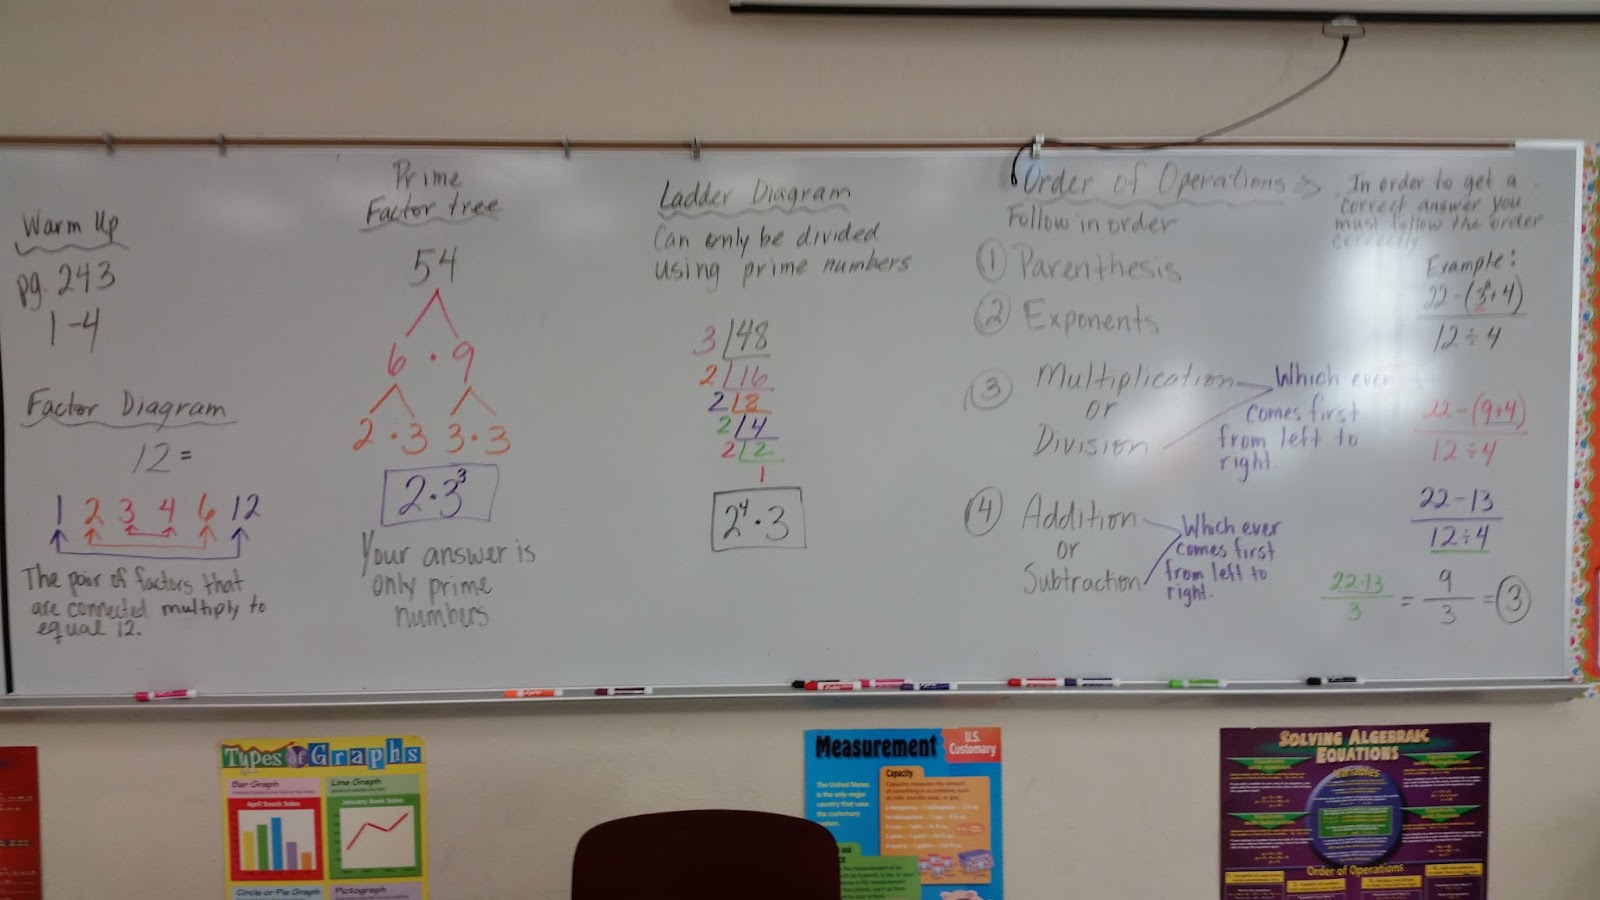 Warm Up
pg. 243
1-4
Factor Diagram
12=
1 2 3 4 6 12
The pair of factors that
are connected multiply to
equal 12.
Prime
Factor tree
54
6 · 9
2 · 3 3 · 3
2 · 3³
Your answer is
only prime
numbers
Ladder Diagram
Can only be divided
using prime numbers
3 48
2 16
2 8
2 4
2 2
1
2⁴ · 3
Order of Operations
Follow in order
1 Parenthesis
2 Exponents
3 Multiplication
or
Division
Which ever
comes first
from left to
right.
4 Addition
or
Subtraction
Which ever
comes first
from left to
right.
In order to get a
correct answer you
must follow the order
correctly
Example:
22-(3²+4)
12÷4
22-(9+4)
12÷4
22-13
12÷4
22-13
3
=
9
3
= 3
Types of Graphs
Bar Graph
April Snack Sales
Line Graph
January Book Sales
Circle or Pie Graph
Pictograph
Measurement
U.S.
Customary
The United States
is the only major
country that uses
the customary
system.
Capacity
SOLVING ALGEBRAIC
EQUATIONS
Variables
Order of Operations